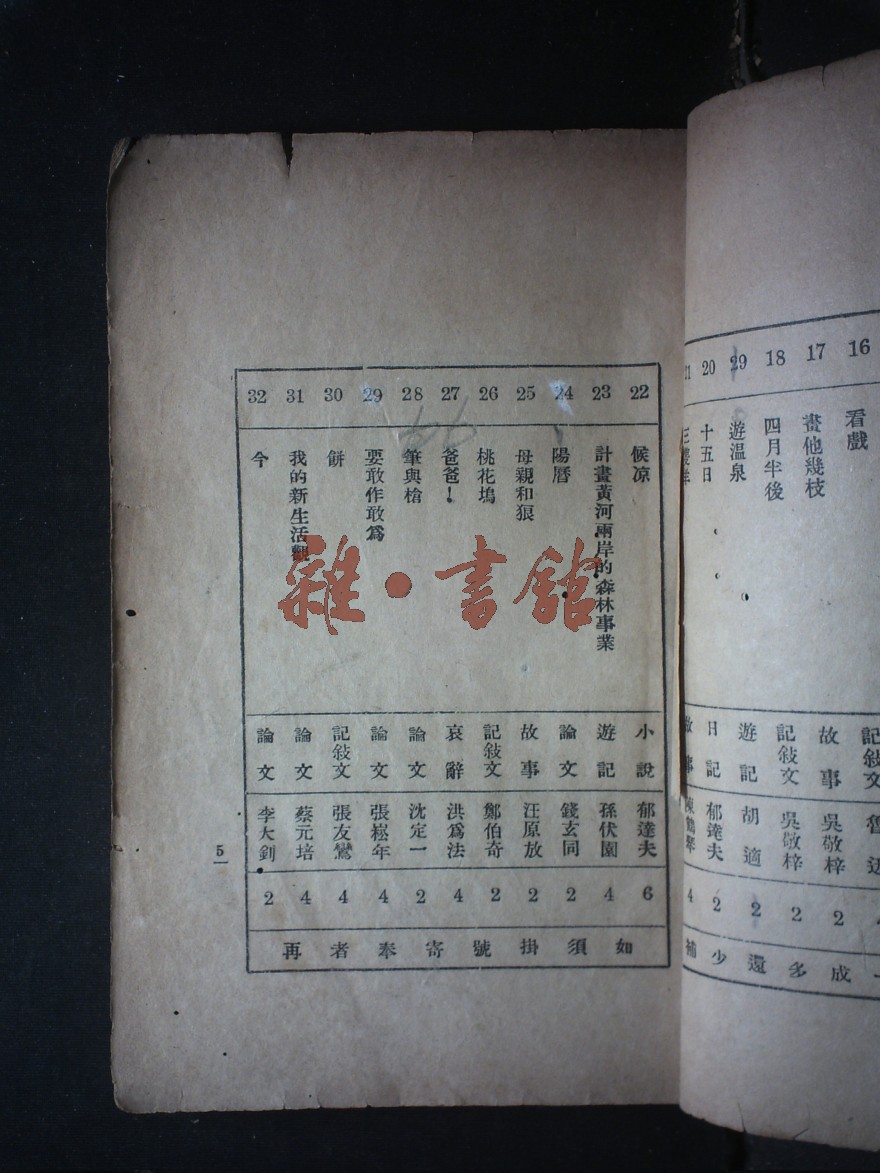 16
看戲
記敍文
17
畫他幾枝
故事
吳敬梓
2
18
四月半後
記敍文
吳敬梓
2
29
遊溫泉
遊記
胡適
2
20
十五日
日記
郁達夫
2
4
成多還少補
22
候凉
小說
郁達夫
6
23
計畫黃河兩岸的森林事業
遊記
孫伏園
4
24
陽曆
論文
錢玄同
2
25
母親和狼
故事
汪原放
2
26
桃花塢
記敍文
鄭伯奇
2
27
爸爸!
哀辭
洪爲法
4
28
筆與槍
論文
沈定一
2
29
要敢作敢爲
論文
張崧年
4
30
餅
記敍文
張友鸞
4
31
我的新生活觀
論文
蔡元培
4
32
今
論文
李大釗
2
如須掛號寄奉者再
5
雜·書館